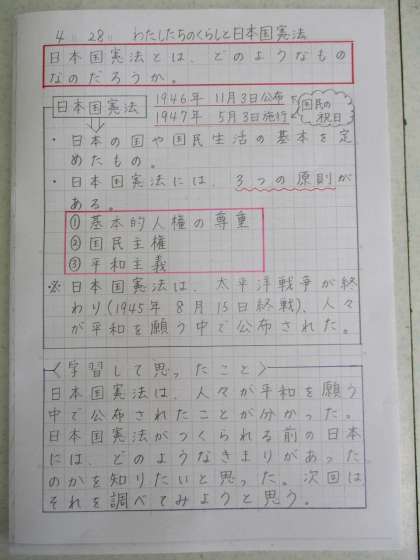 4 28 わたしたちのくらしと日本国憲法
日本国憲法とは、どのようなもの
なのだろうか。
日本国憲法
1946年 11月3日公布
1947年 5月3日施行
国民の
祝日
・日本の国や国民生活の基本を定
めたもの。
・日本国憲法には、3つの原則が
ある。
①基本的人権の尊重
②国民主権
③平和主義
※日本国憲法は、太平洋戦争が終
わり(1945年8月15日終戦)、人々
が平和を願う中で公布された。
〈学習して思ったこと〉
日本国憲法は、人々が平和を願う
中で公布されたことが分かった。
日本国憲法がつくられる前の日本
には、どのようなきまりがあった
のかを知りたいと思った。次回は
それを調べてみようと思う。